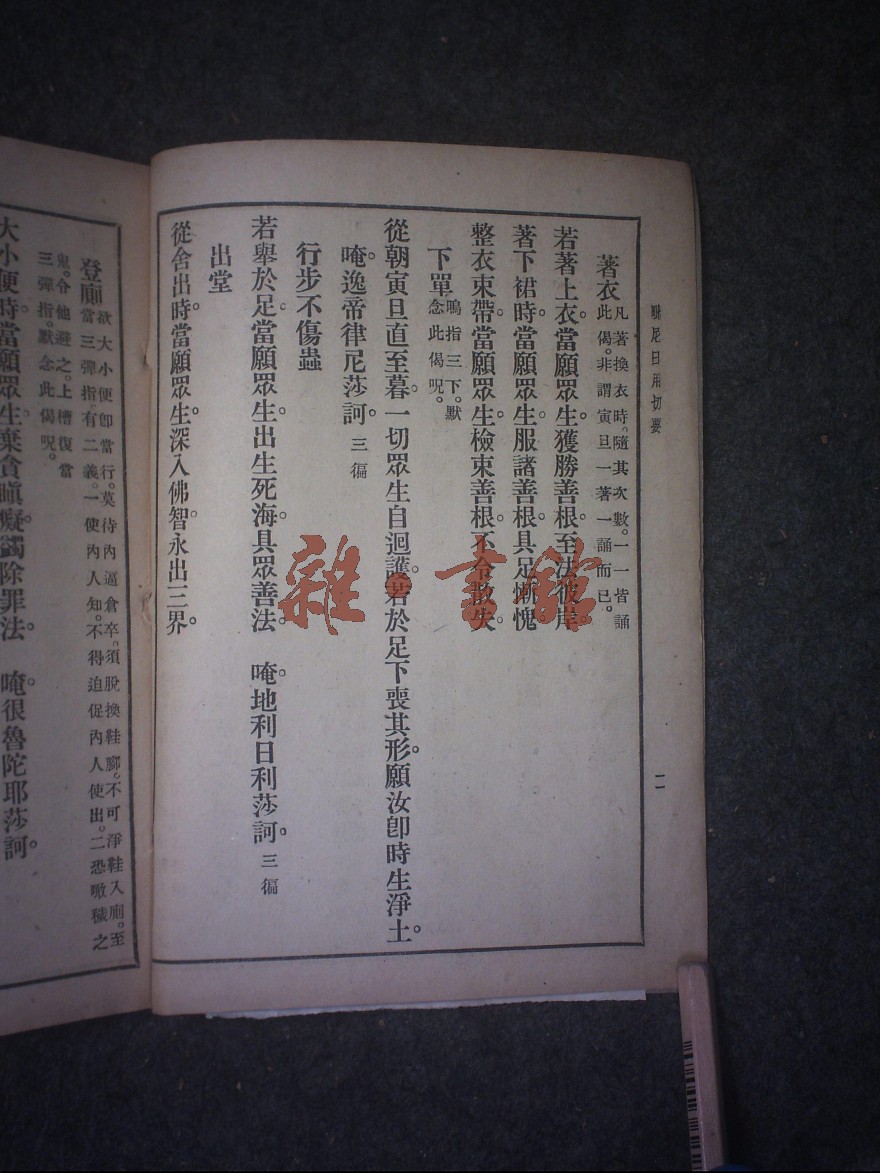 毗尼日用切要
二
著衣
凡著換衣時。隨其次數。一一皆誦
此偈。非謂寅旦一著一誦而已。
若著上衣。當願眾生。獲勝善根。至法彼岸。
著下裙時。當願眾生。服諸善根。具足慚愧。
整衣束帶。當願眾生。檢束善根。不令散失。
下單
鳴指三下。默
念此偈呪。
從朝寅旦直至暮。一切眾生自迴護。若於足下喪其形。願汝卽時生淨土。
唵。逸帝律尼莎訶。三徧
行步不傷蟲
若舉於足。當願眾生。出生死海。具眾善法。 唵。地利日利莎訶。三徧
出堂
從舍出時。當願眾生。深入佛智。永出三界。
登廁
欲大小便卽當行。莫待內逼倉卒。須脫換鞋腳。不可淨鞋入廁。至
當三彈指有二義。一使內人知。不得迫促內人使出。二恐噉穢之
鬼。令他避之。上槽復當
三彈指。默念此偈呪。
大小便時。當願眾生。棄貪瞋癡。蠲除罪法。 唵。很魯陀耶莎訶。
雜·書館